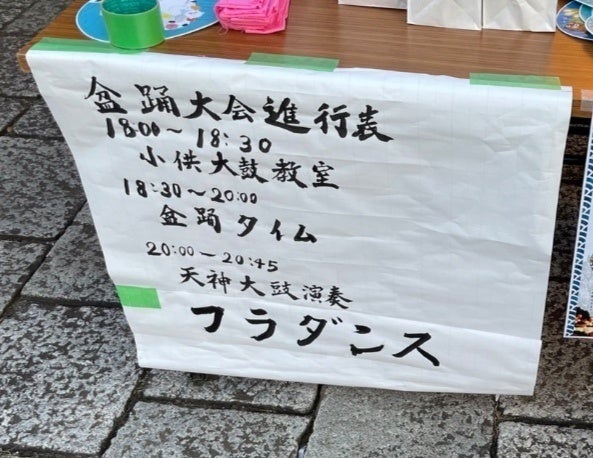 盆踊大会進行表
18:00～18:30
小供大鼓教室
18:30～20:00
盆踊タイム
20:00－20:45
天神大鼓演奏
フラダンス